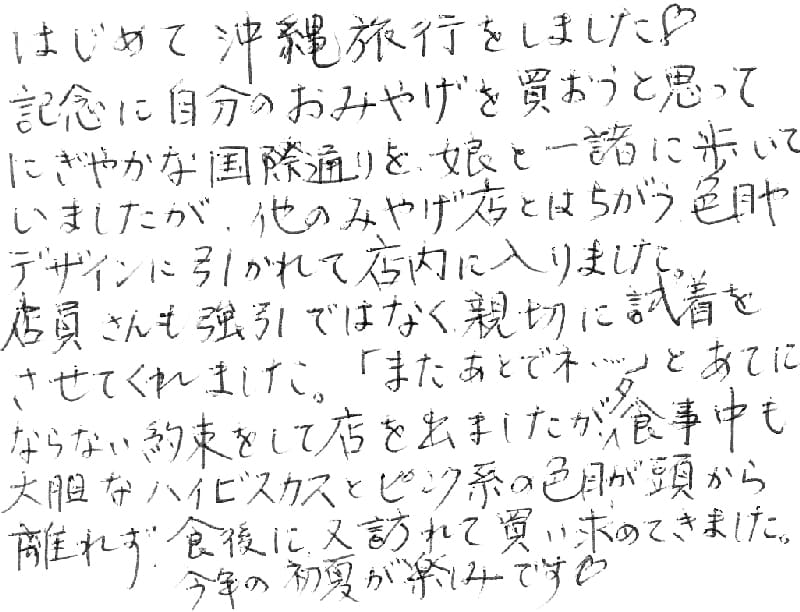 はじめて沖縄旅行をしました♡
記念に自分のおみやげを買おうと思って
にぎやかな国際通りを、娘と一諸に歩いて
いましたが、他のみやげ店とはちがう色目や
デザインに引かれて店内に入りました。
店員さんも強引ではなく、親切に試着を
させてくれました。「またあとでネ…」とあてに
ならない約束をして店を出ましたが、夕食事中も
大胆なハイビスカスとピンク系の色目が頭から
離れず、食後に又訪れて買い求めてきました。
今年の初夏が楽しみです♡